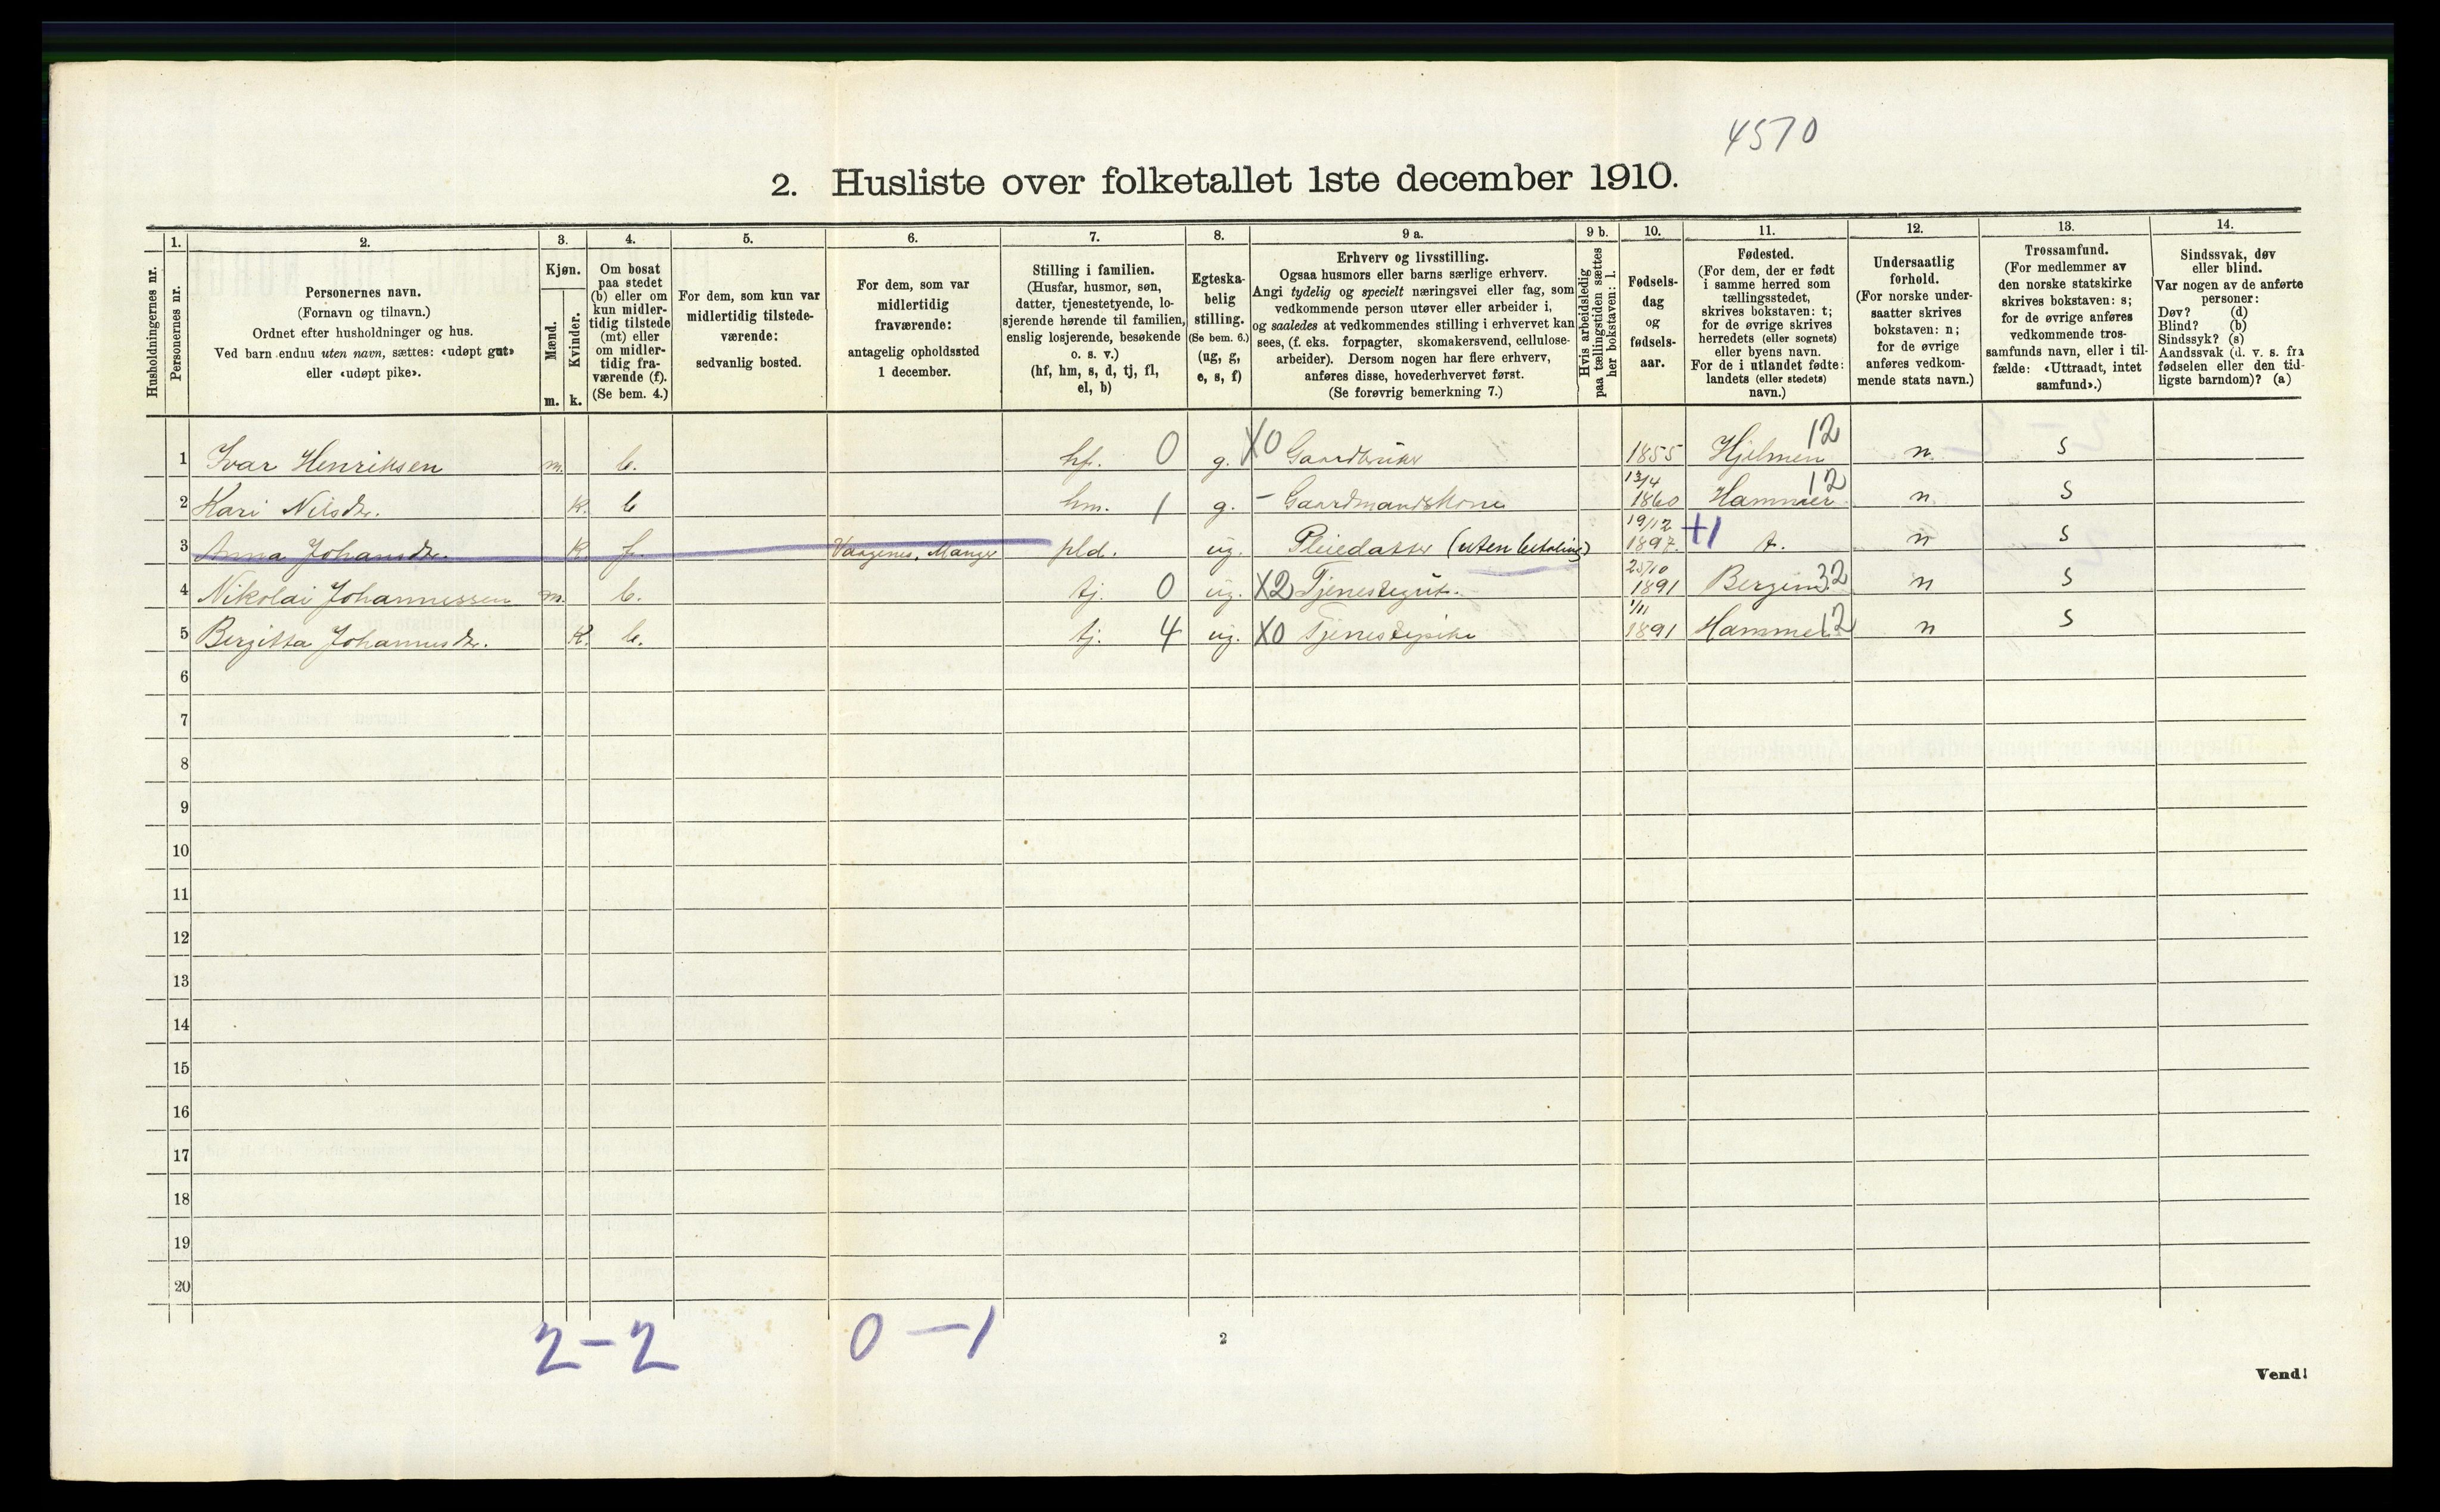 4570
2. Husliste over folketallet 1ste december 1910.
Husholdningernes nr.
1.
Personernes nr.
2.
Personernes navn.
(Fornavn og tilnavn.)
Ordnet efter husholdninger og hus.
Ved barn endnu uten navn, sættes: «udøpt gut»
eller «udøpt pike».
3.
Kjøn.
Mænd.
Kvinder.
m. k.
4.
Om bosat
paa stedet
(b) eller om
kun midler-
tidig tilstede
(mt) eller
om midler-
tidig fra-
værende (f).
(Se bem. 4.)
5.
For dem, som kun var
midlertidig tilstede-
værende:
sedvanlig bosted.
6.
For dem, som var
midlertidig
fraværende:
antagelig opholdssted
1 december.
7.
Stilling i familien.
(Husfar, husmor, søn,
datter, tjenestetyende, lo-
sjerende hørende til familien,
enslig losjerende, besøkende
o. s. v.)
(hf, hm, s, d, tj, fl,
el, b)
8.
Egteska-
belig
stilling.
(Se bem. 6.)
(ug, g,
e, s, f)
9 a.
Erhverv og livsstilling.
Ogsaa husmors eller barns særlige erhverv.
Angi tydelig og specielt næringsvei eller fag, som
vedkommende person utøver eller arbeider i,
og saaledes at vedkommendes stilling i erhvervet kan
sees, (f. eks. forpagter, skomakersvend, cellulose-
arbeider). Dersom nogen har flere erhverv,
anføres disse, hovederhvervet først.
(Se forøvrig bemerkning 7.)
9 b.
Hvis arbeidsledig
paa tællingstiden sættes
her bokstaven: l.
10.
Fødsels-
dag
og
fødsels-
aar.
11.
Fødested.
(For dem, der er født
i samme herred som
tællingsstedet,
skrives bokstaven: t;
for de øvrige skrives
herredets (eller sognets)
eller byens navn.
For de i utlandet fødte:
landets (eller stedets)
navn.)
12.
Undersaatlig
forhold.
(For norske under-
saatter skrives
bokstaven: n;
for de øvrige
anføres vedkom-
mende stats navn.)
13.
Trossamfund.
(For medlemmer av
den norske statskirke
skrives bokstaven: s;
for de øvrige anføres
vedkommende tros-
samfunds navn, eller i til-
fælde: «Uttraadt, intet
samfund».)
14.
Sindssvak, døv
eller blind.
Var nogen av de anførte
personer:
Døv? (d)
Blind? (b)
Sindssyk? (s)
Aandssvak (d. v. s. fra
fødselen eller den tid-
ligste barndom)? (a)
1 Ivar Henriksen m. b. hf. 0 g. X0 Gaardbruker 1855 Hjelmen 12 n s
2 Kari Nilsdtr. k. b hm. 1 g. - Gaardmandskone 13/4 1860 Hammer 12 n s
3 Anna Johansdtr. k. f. Vaagenes, Manger pld. ug. Pleiedatter (uten betaling) 19/12 1897. +1 t. n s
4 Nikolai Johannessen m. b. tj. 0 ug. X2 Tjenestegut. 25/10 1891 Bergen 32 n s
5 Bergitta Johannesdtr. k. b. tj. 4 ug. X0 Tjenestepike 1/11 1891 Hammer 12 n s
6
7
8
9
10
11
12
13
14
15
16
17
18
19
20
2-2 0-1
2
Vend!